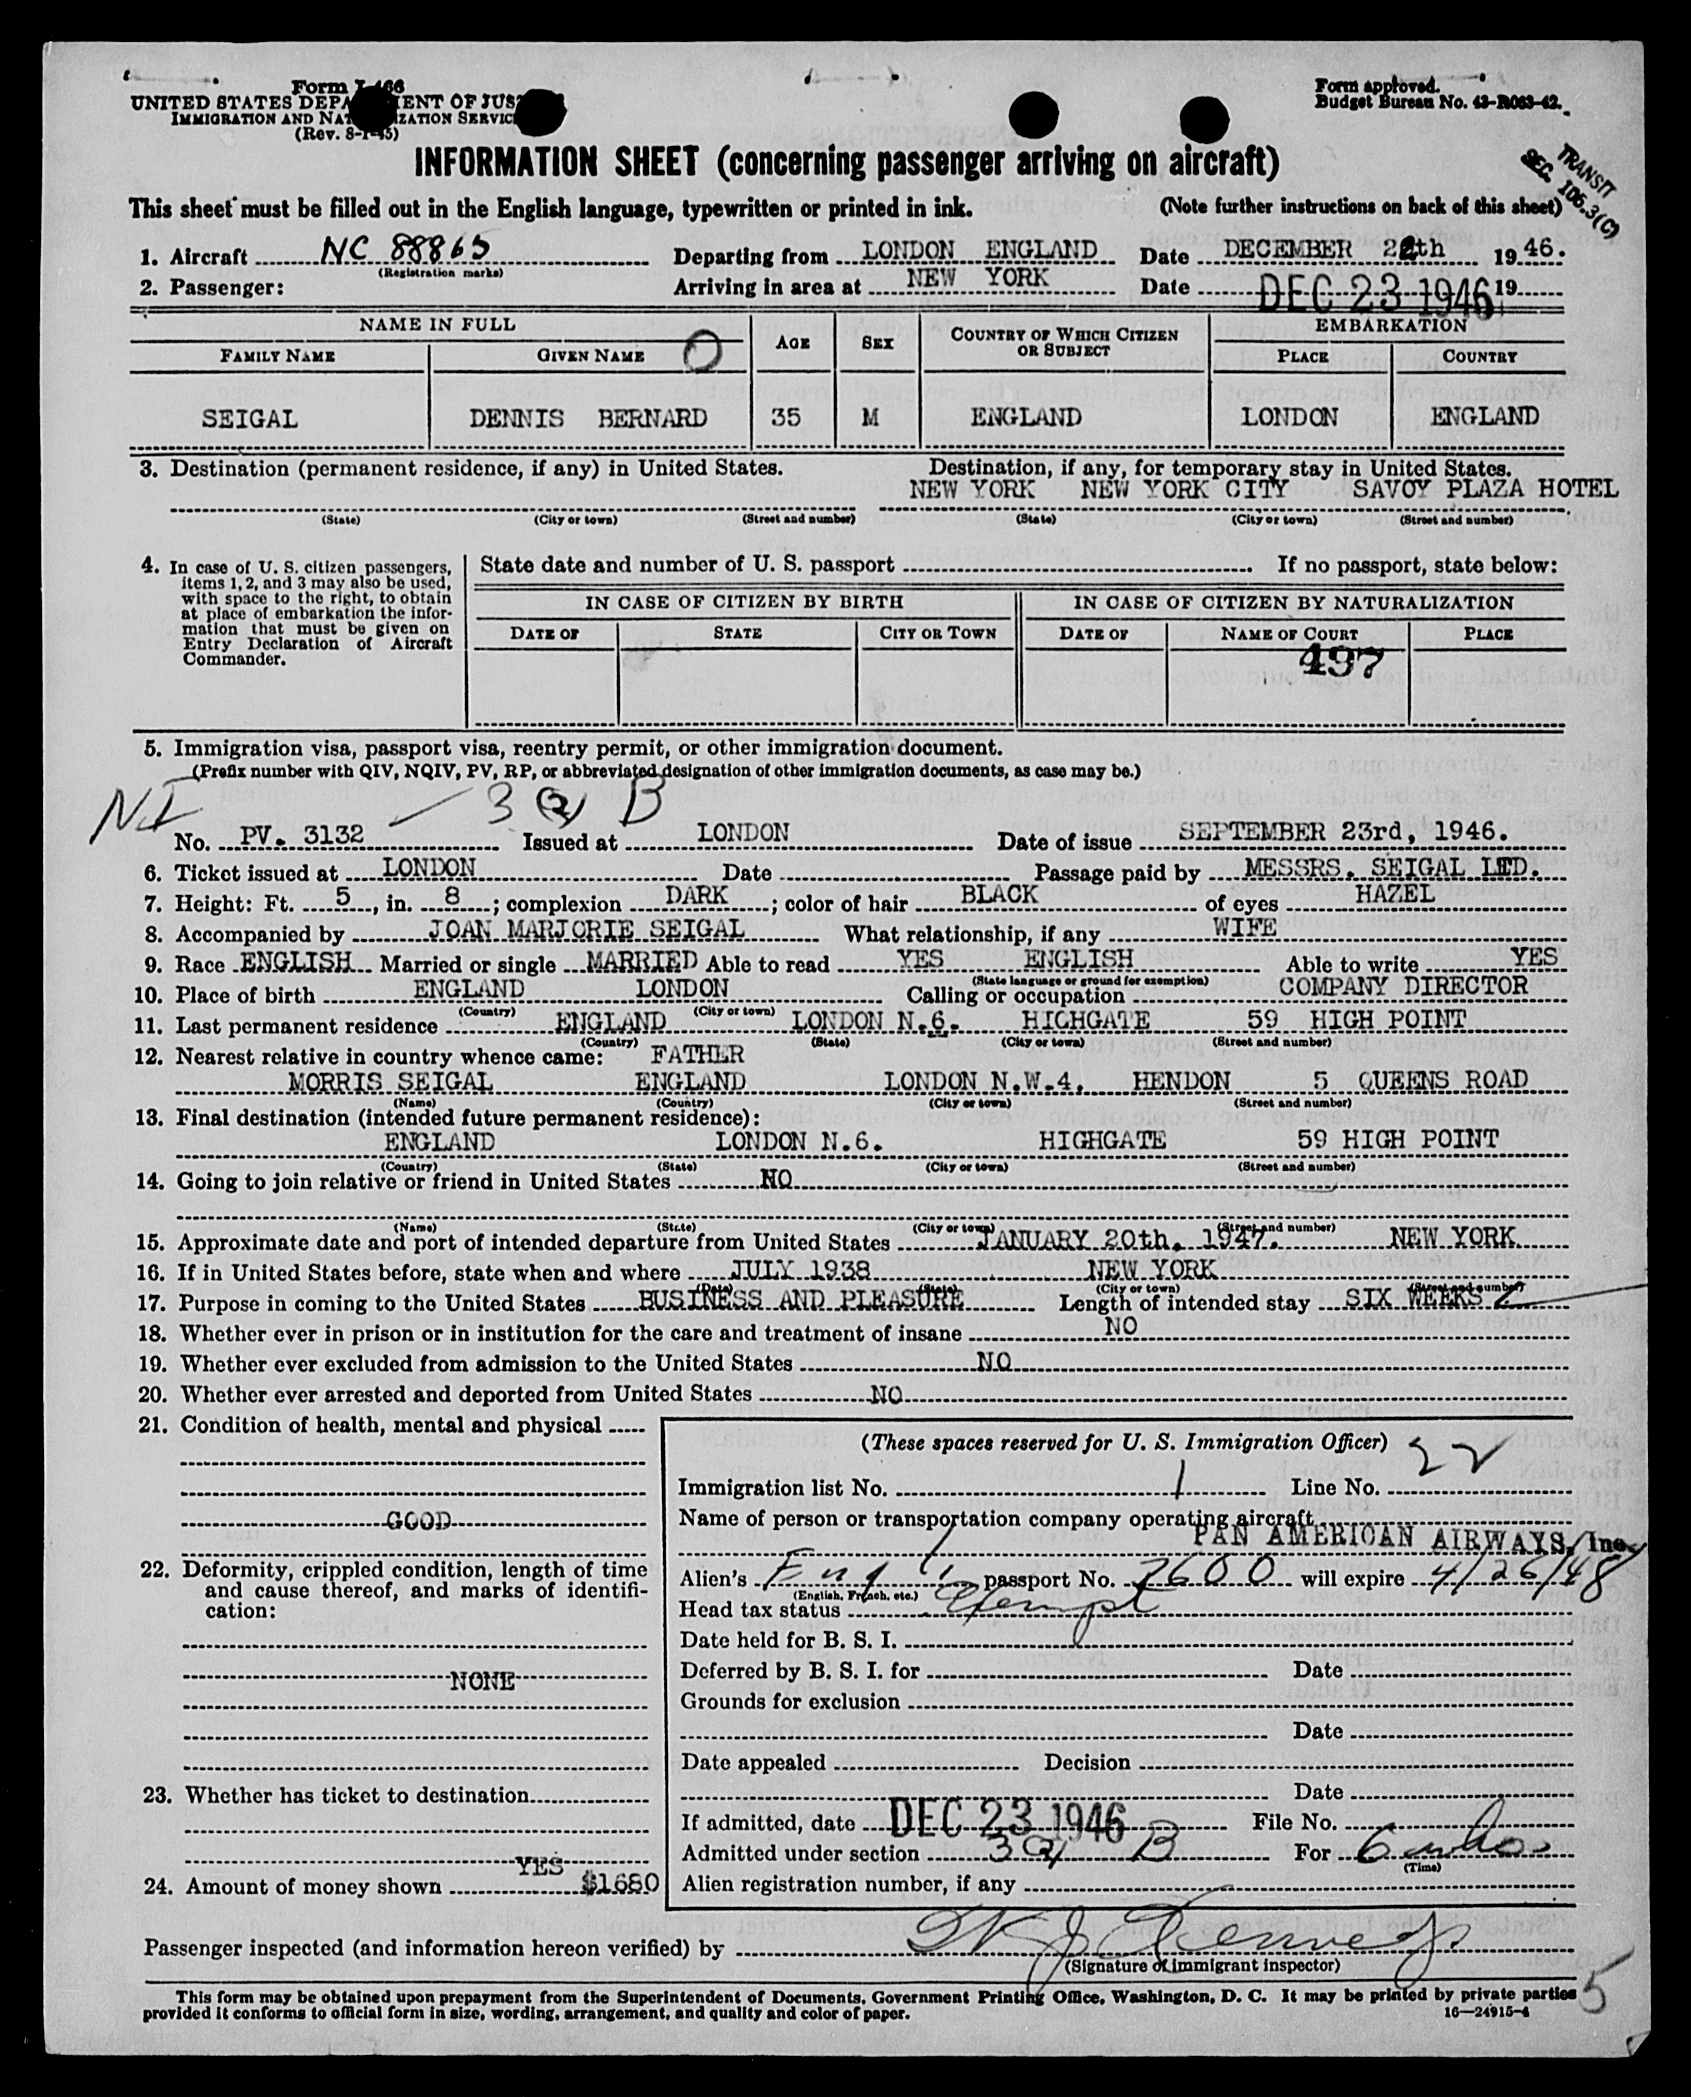 Form I-466
UNITED STATES DEPARTMENT OF JUSTICE
IMMIGRATION AND NATURALIZATION SERVICE
(Rev. 8-1-45)
Form approved.
Budget Bureau No. 43-R063-42.
TRANSIT
SEC. 106.3(C)
INFORMATION SHEET (concerning passenger arriving on aircraft)
This sheet must be filled out in the English language, typewritten or printed in ink. (Note further instructions on back of this sheet)
1. Aircraft NC 88865 Departing from LONDON ENGLAND Date DECEMBER 22th 1946.
(Registration marks)
2. Passenger: Arriving in area at NEW YORK Date DEC 23 1946 19
NAME IN FULL AGE SEX COUNTRY OF WHICH CITIZEN OR SUBJECT EMBARKATION
FAMILY NAME GIVEN NAME PLACE COUNTRY
SEIGAL DENNIS BERNARD 35 M ENGLAND LONDON ENGLAND
3. Destination (permanent residence, if any) in United States. Destination, if any, for temporary stay in United States.
NEW YORK NEW YORK CITY SAVOY PLAZA HOTEL
(State) (City or town) (Street and number) (State) (City or town) (Street and number)
4. In case of U. S. citizen passengers, items 1, 2, and 3 may also be used, with space to the right, to obtain at place of embarkation the information that must be given on Entry Declaration of Aircraft Commander.
State date and number of U. S. passport If no passport, state below:
IN CASE OF CITIZEN BY BIRTH IN CASE OF CITIZEN BY NATURALIZATION
DATE OF STATE CITY OR TOWN DATE OF NAME OF COURT PLACE
497
5. Immigration visa, passport visa, reentry permit, or other immigration document.
(Prefix number with QIV, NQIV, PV, RP, or abbreviated designation of other immigration documents, as case may be.)
NI 3 (2) B
No. PV. 3132 Issued at LONDON Date of issue SEPTEMBER 23rd, 1946.
6. Ticket issued at LONDON Date Passage paid by MESSRS. SEIGAL LTD.
7. Height: Ft. 5, in. 8; complexion DARK; color of hair BLACK of eyes HAZEL
8. Accompanied by JOAN MARJORIE SEIGAL What relationship, if any WIFE
9. Race ENGLISH Married or single MARRIED Able to read YES ENGLISH Able to write YES
(State language or ground for exemption)
10. Place of birth ENGLAND LONDON Calling or occupation COMPANY DIRECTOR
(Country) (City or town)
11. Last permanent residence ENGLAND LONDON N.6. HIGHGATE 59 HIGH POINT
(Country) (State) (City or town) (Street and number)
12. Nearest relative in country whence came: FATHER
MORRIS SEIGAL ENGLAND LONDON N.W.4, HENDON 5 QUEENS ROAD
(Name) (Country) (City or town) (Street and number)
13. Final destination (intended future permanent residence):
ENGLAND LONDON N.6. HIGHGATE 59 HIGH POINT
(Country) (State) (City or town) (Street and number)
14. Going to join relative or friend in United States NO
(Name) (State) (City or town) (Street and number)
15. Approximate date and port of intended departure from United States JANUARY 20th, 1947. NEW YORK
16. If in United States before, state when and where JULY 1938 NEW YORK
(Date) (State) (City or town) (Street and number)
17. Purpose in coming to the United States BUSINESS AND PLEASURE Length of intended stay SIX WEEKS
18. Whether ever in prison or in institution for the care and treatment of insane NO
19. Whether ever excluded from admission to the United States NO
20. Whether ever arrested and deported from United States NO
21. Condition of health, mental and physical
GOOD
22. Deformity, crippled condition, length of time and cause thereof, and marks of identification:
NONE
23. Whether has ticket to destination
YES
24. Amount of money shown $1680
(These spaces reserved for U. S. Immigration Officer)
Immigration list No. 1 Line No. 22
Name of person or transportation company operating aircraft
PAN AMERICAN AIRWAYS, Inc.
Alien's Eng passport No. 7600 will expire 4/26/48
(English, French, etc.)
Head tax status Exempt
Date held for B. S. I.
Deferred by B. S. I. for Date
Grounds for exclusion
Date
Date appealed Decision
Date
If admitted, date DEC 23 1946 File No.
Admitted under section 3 (2) B For 6 mos
(Time)
Alien registration number, if any
Passenger inspected (and information hereon verified) by
(Signature of immigrant inspector)
This form may be obtained upon prepayment from the Superintendent of Documents, Government Printing Office, Washington, D. C. It may be printed by private parties
provided it conforms to official form in size, wording, arrangement, and quality and color of paper. 16—24915-4
5